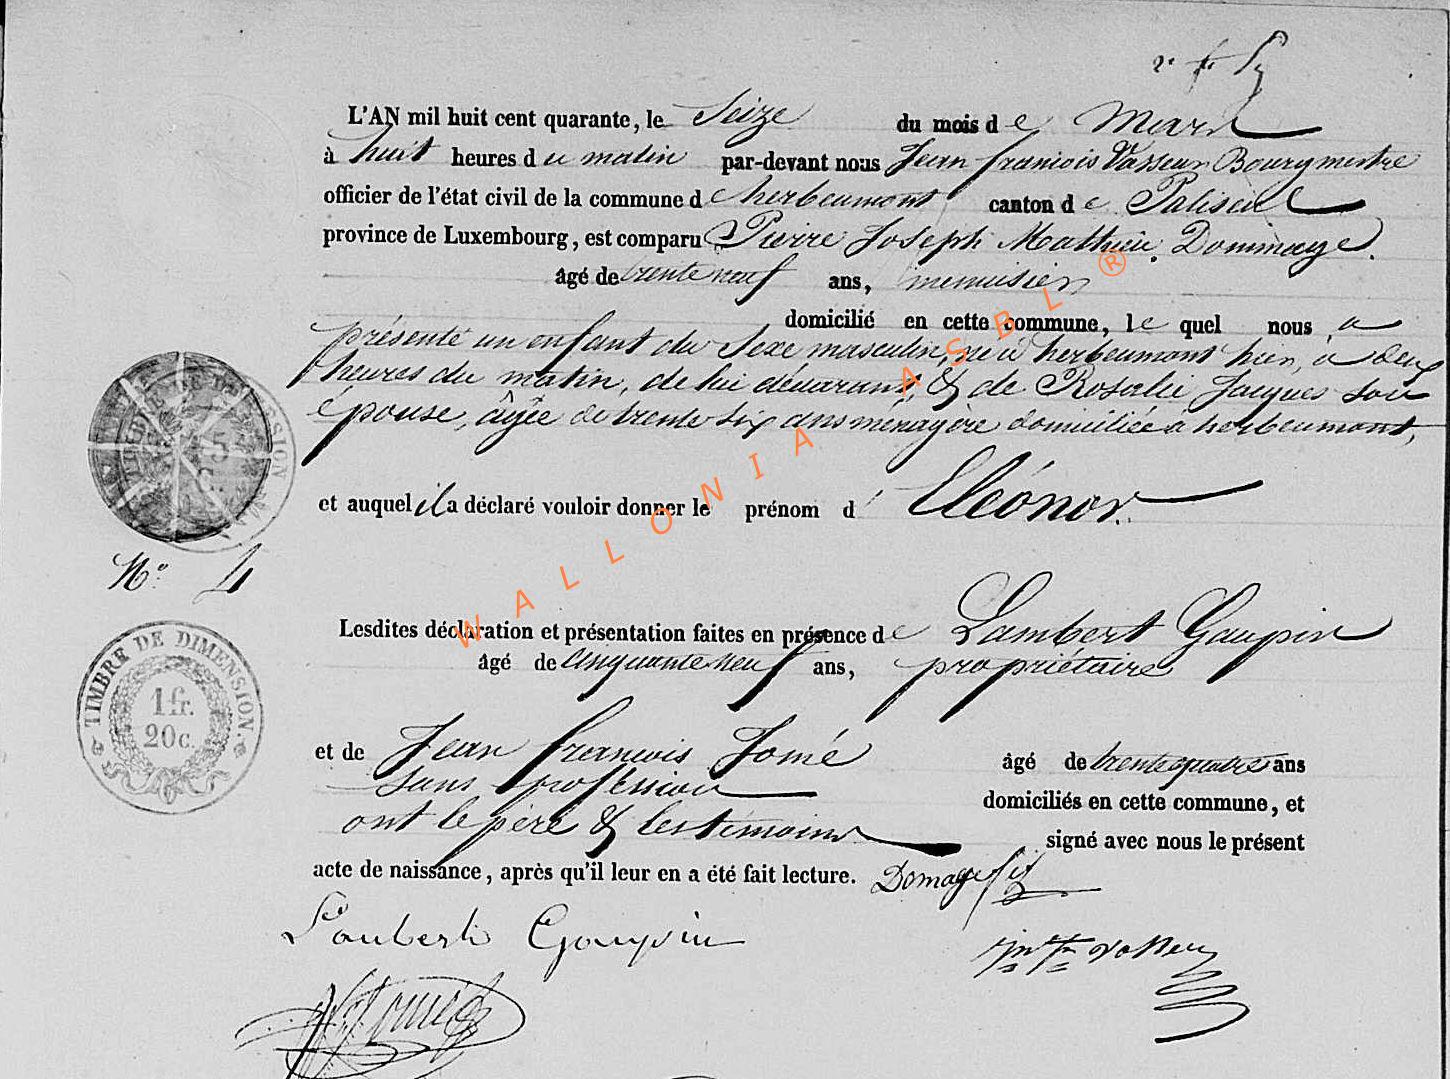 L'AN mil huit cent quarante, le Seize du mois de Mars
à huit heures du matin par-devant nous Jean françois Vasseur Bourgmestre
officier de l'état civil de la commune d'herbeumont canton de Paliseul
province de Luxembourg, est comparu Pierre Joseph Mathieu Dommage
âgé de trente neuf ans, menuisier
domicilié en cette commune, le quel nous a
présenté un enfant du Sexe masculin, né à herbeumont hier, à deux
heures du matin, de lui déclarant, & de Rosalie Jacques son
épouse, âgée de trente six ans ménagère domiciliée à herbeumont,
et auquel il a déclaré vouloir donner le prénom d' Eléonor.
N° 4
Lesdites déclaration et présentation faites en présence de Lambert Gaupin
âgé de cinquante neuf ans, propriétaire
et de Jean françois Jomé âgé de trente quatre ans
sans profession domiciliés en cette commune, et
ont le père & les témoins signé avec nous le présent
acte de naissance, après qu'il leur en a été fait lecture. Domage
Lambert Gaupin
TIMBRE DE DIMENSION
1 fr.
20 c.
WALLONIA ASBL ®